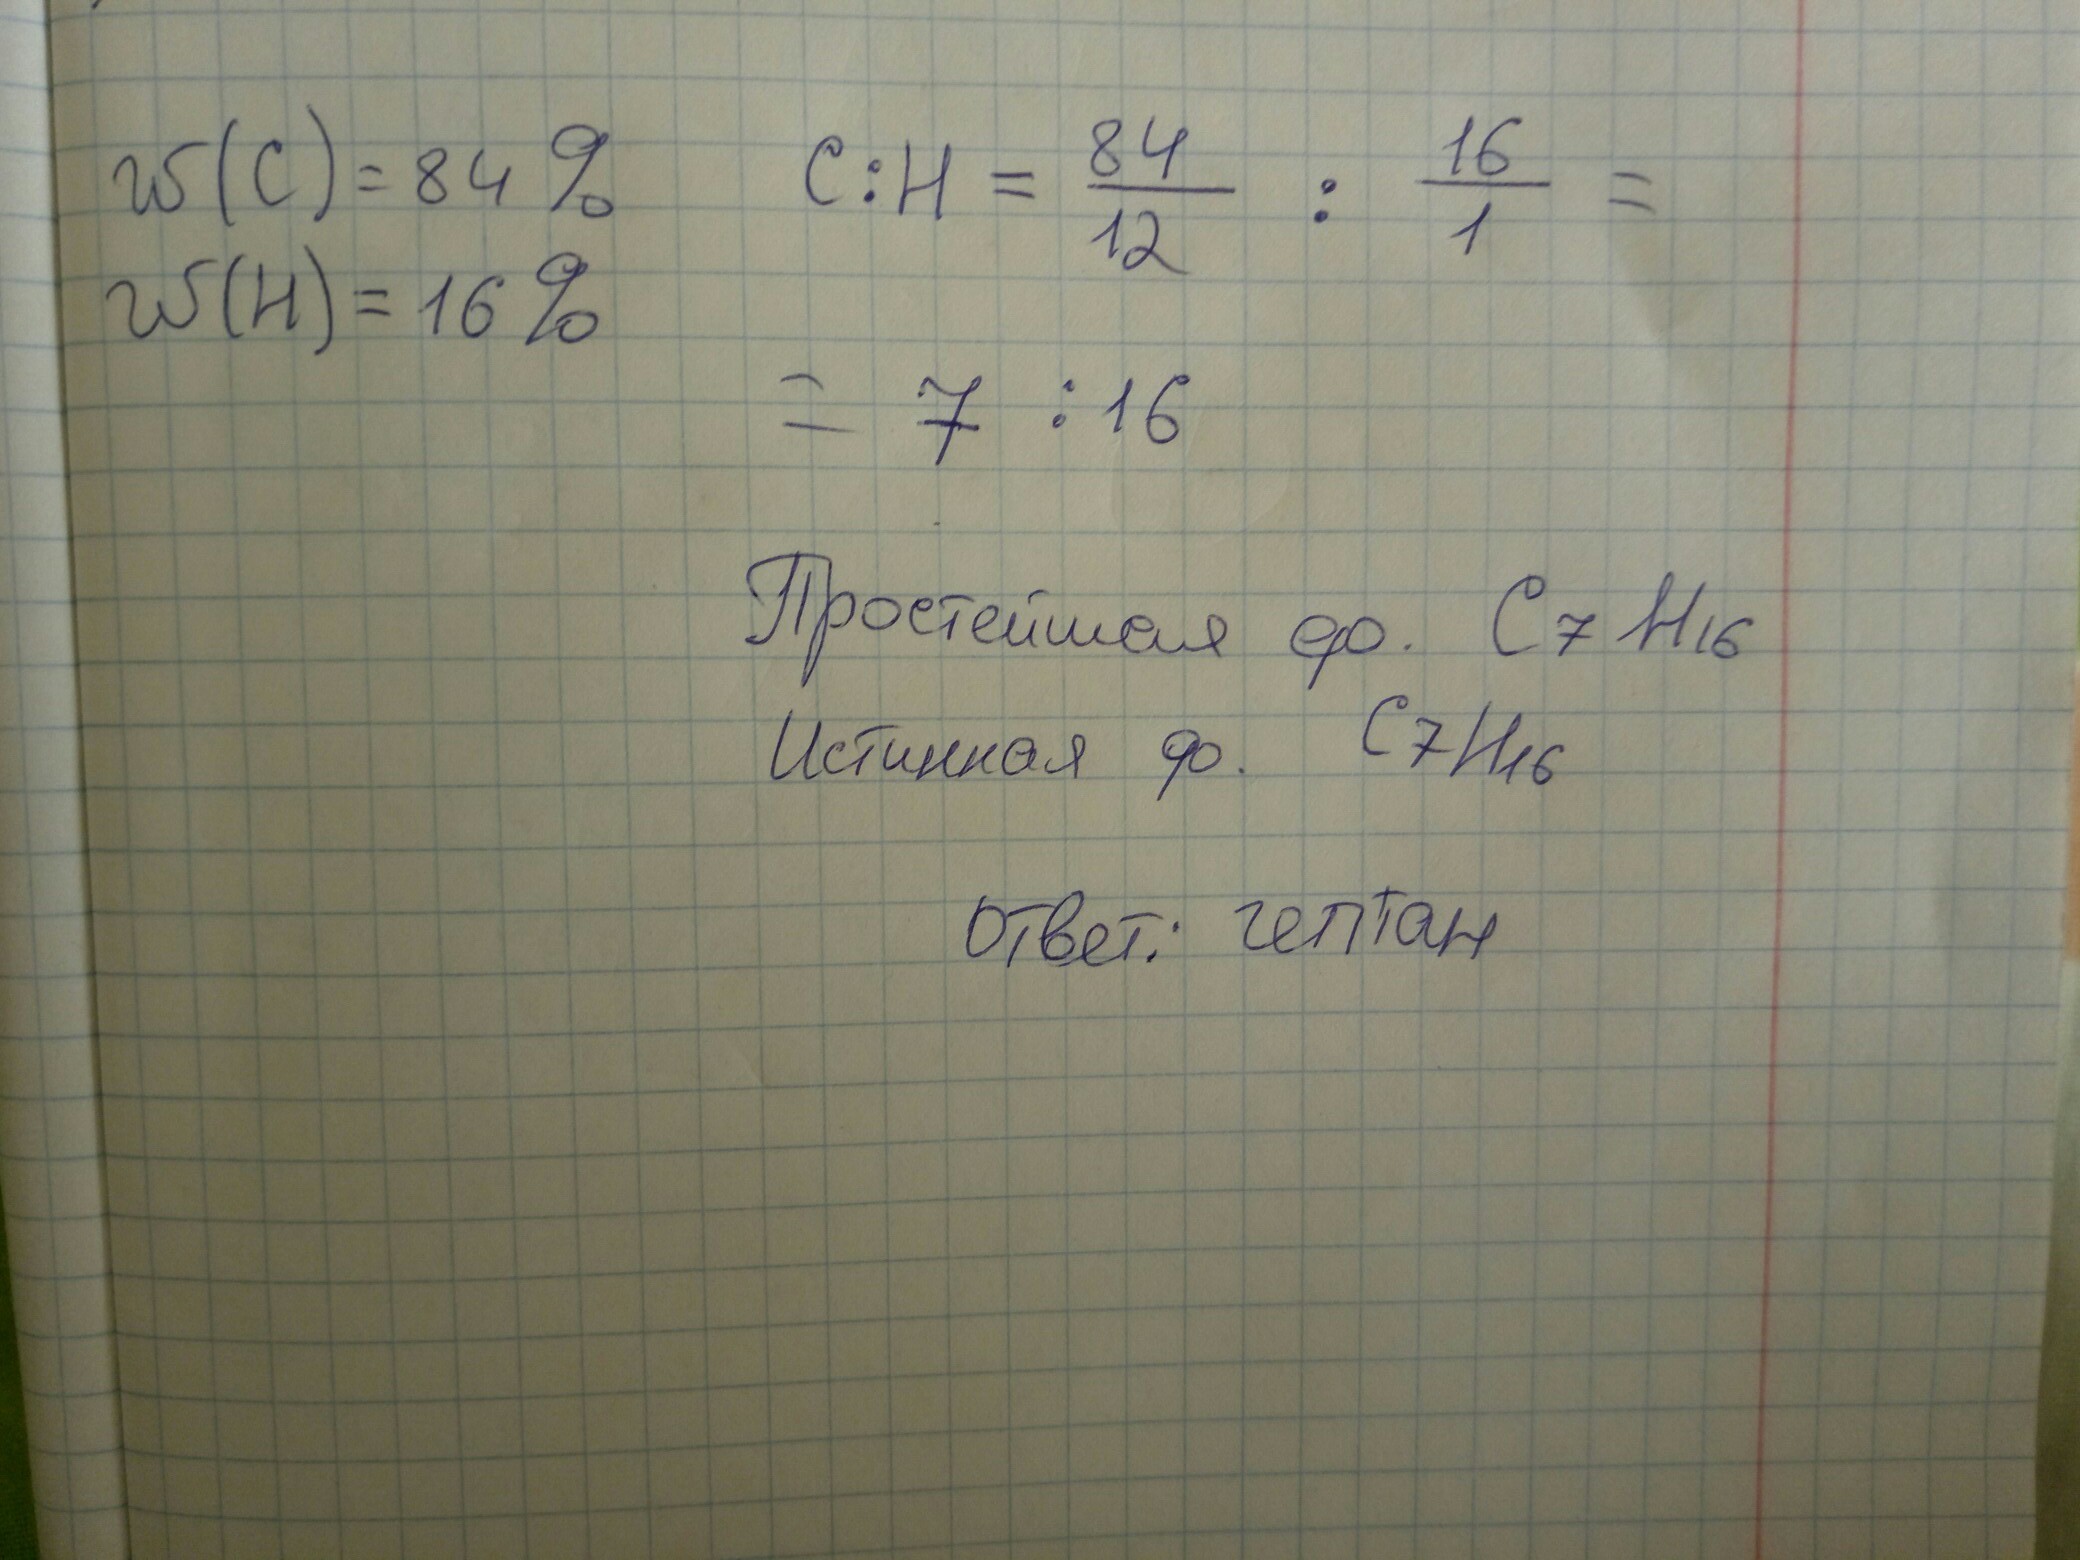 w(C) = 84 % C:H = 84/12 : 16/1 =
w(H) = 16 %
= 7 : 16
Простейшая ф. C₇H₁₆
Истинная ф. C₇H₁₆
Ответ: гептан